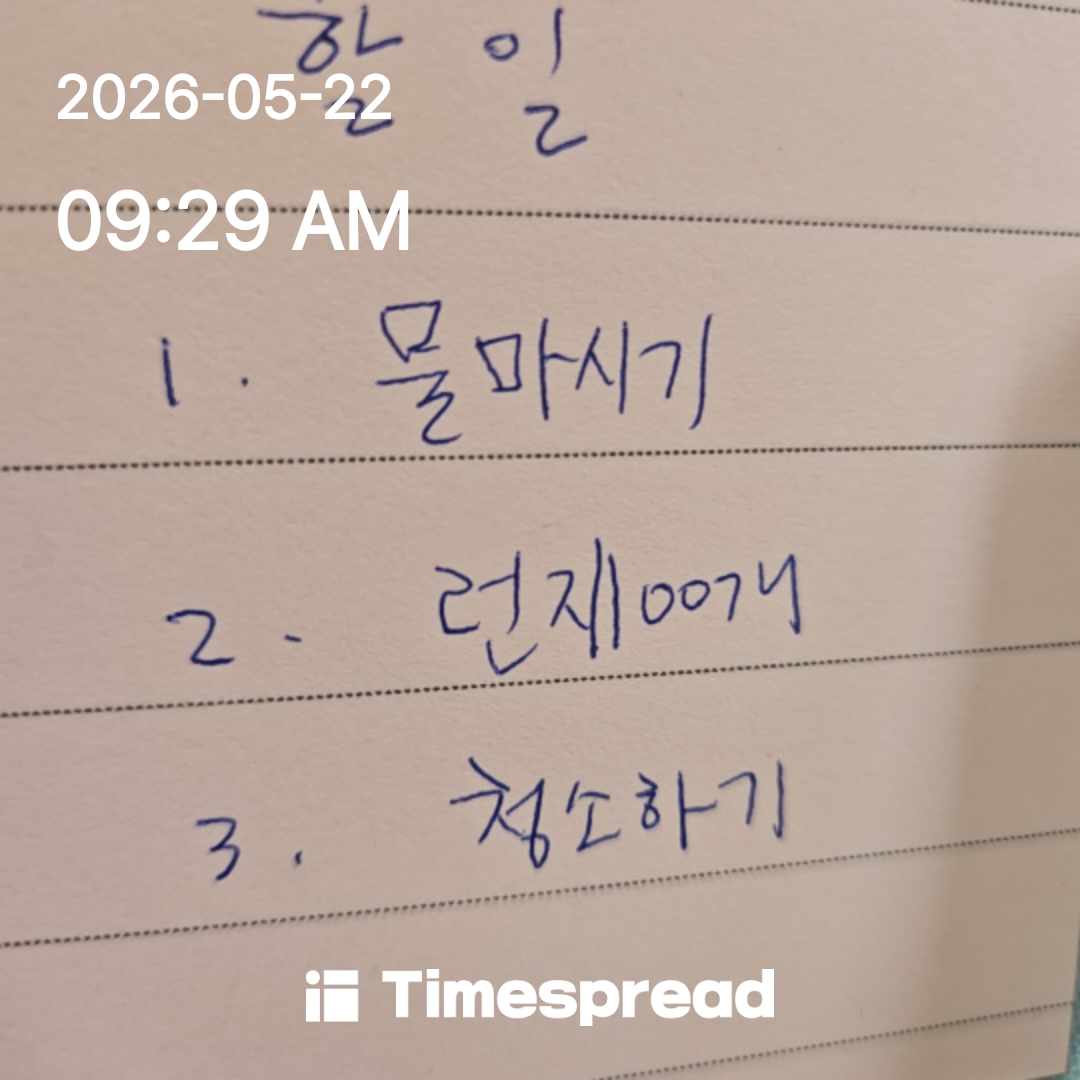 할 일
2026-05-22
09:29 AM
1. 물마시기
2. 런재100개
3. 청소하기
Timespread